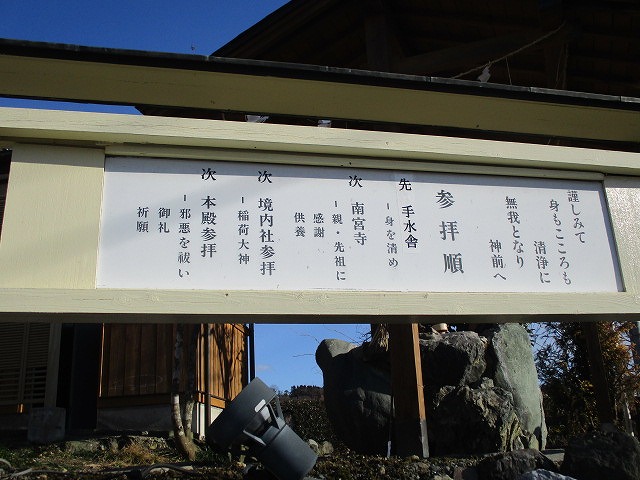 謹しみて
身もこころも
清浄に
無我となり
神前へ
参拝順
先 手水舎
－身を清め
次 南宮寺
－親・先祖に
感謝
供養
次 境内社参拝
－稲荷大神
次 本殿参拝
－邪悪を祓い
御礼
祈願